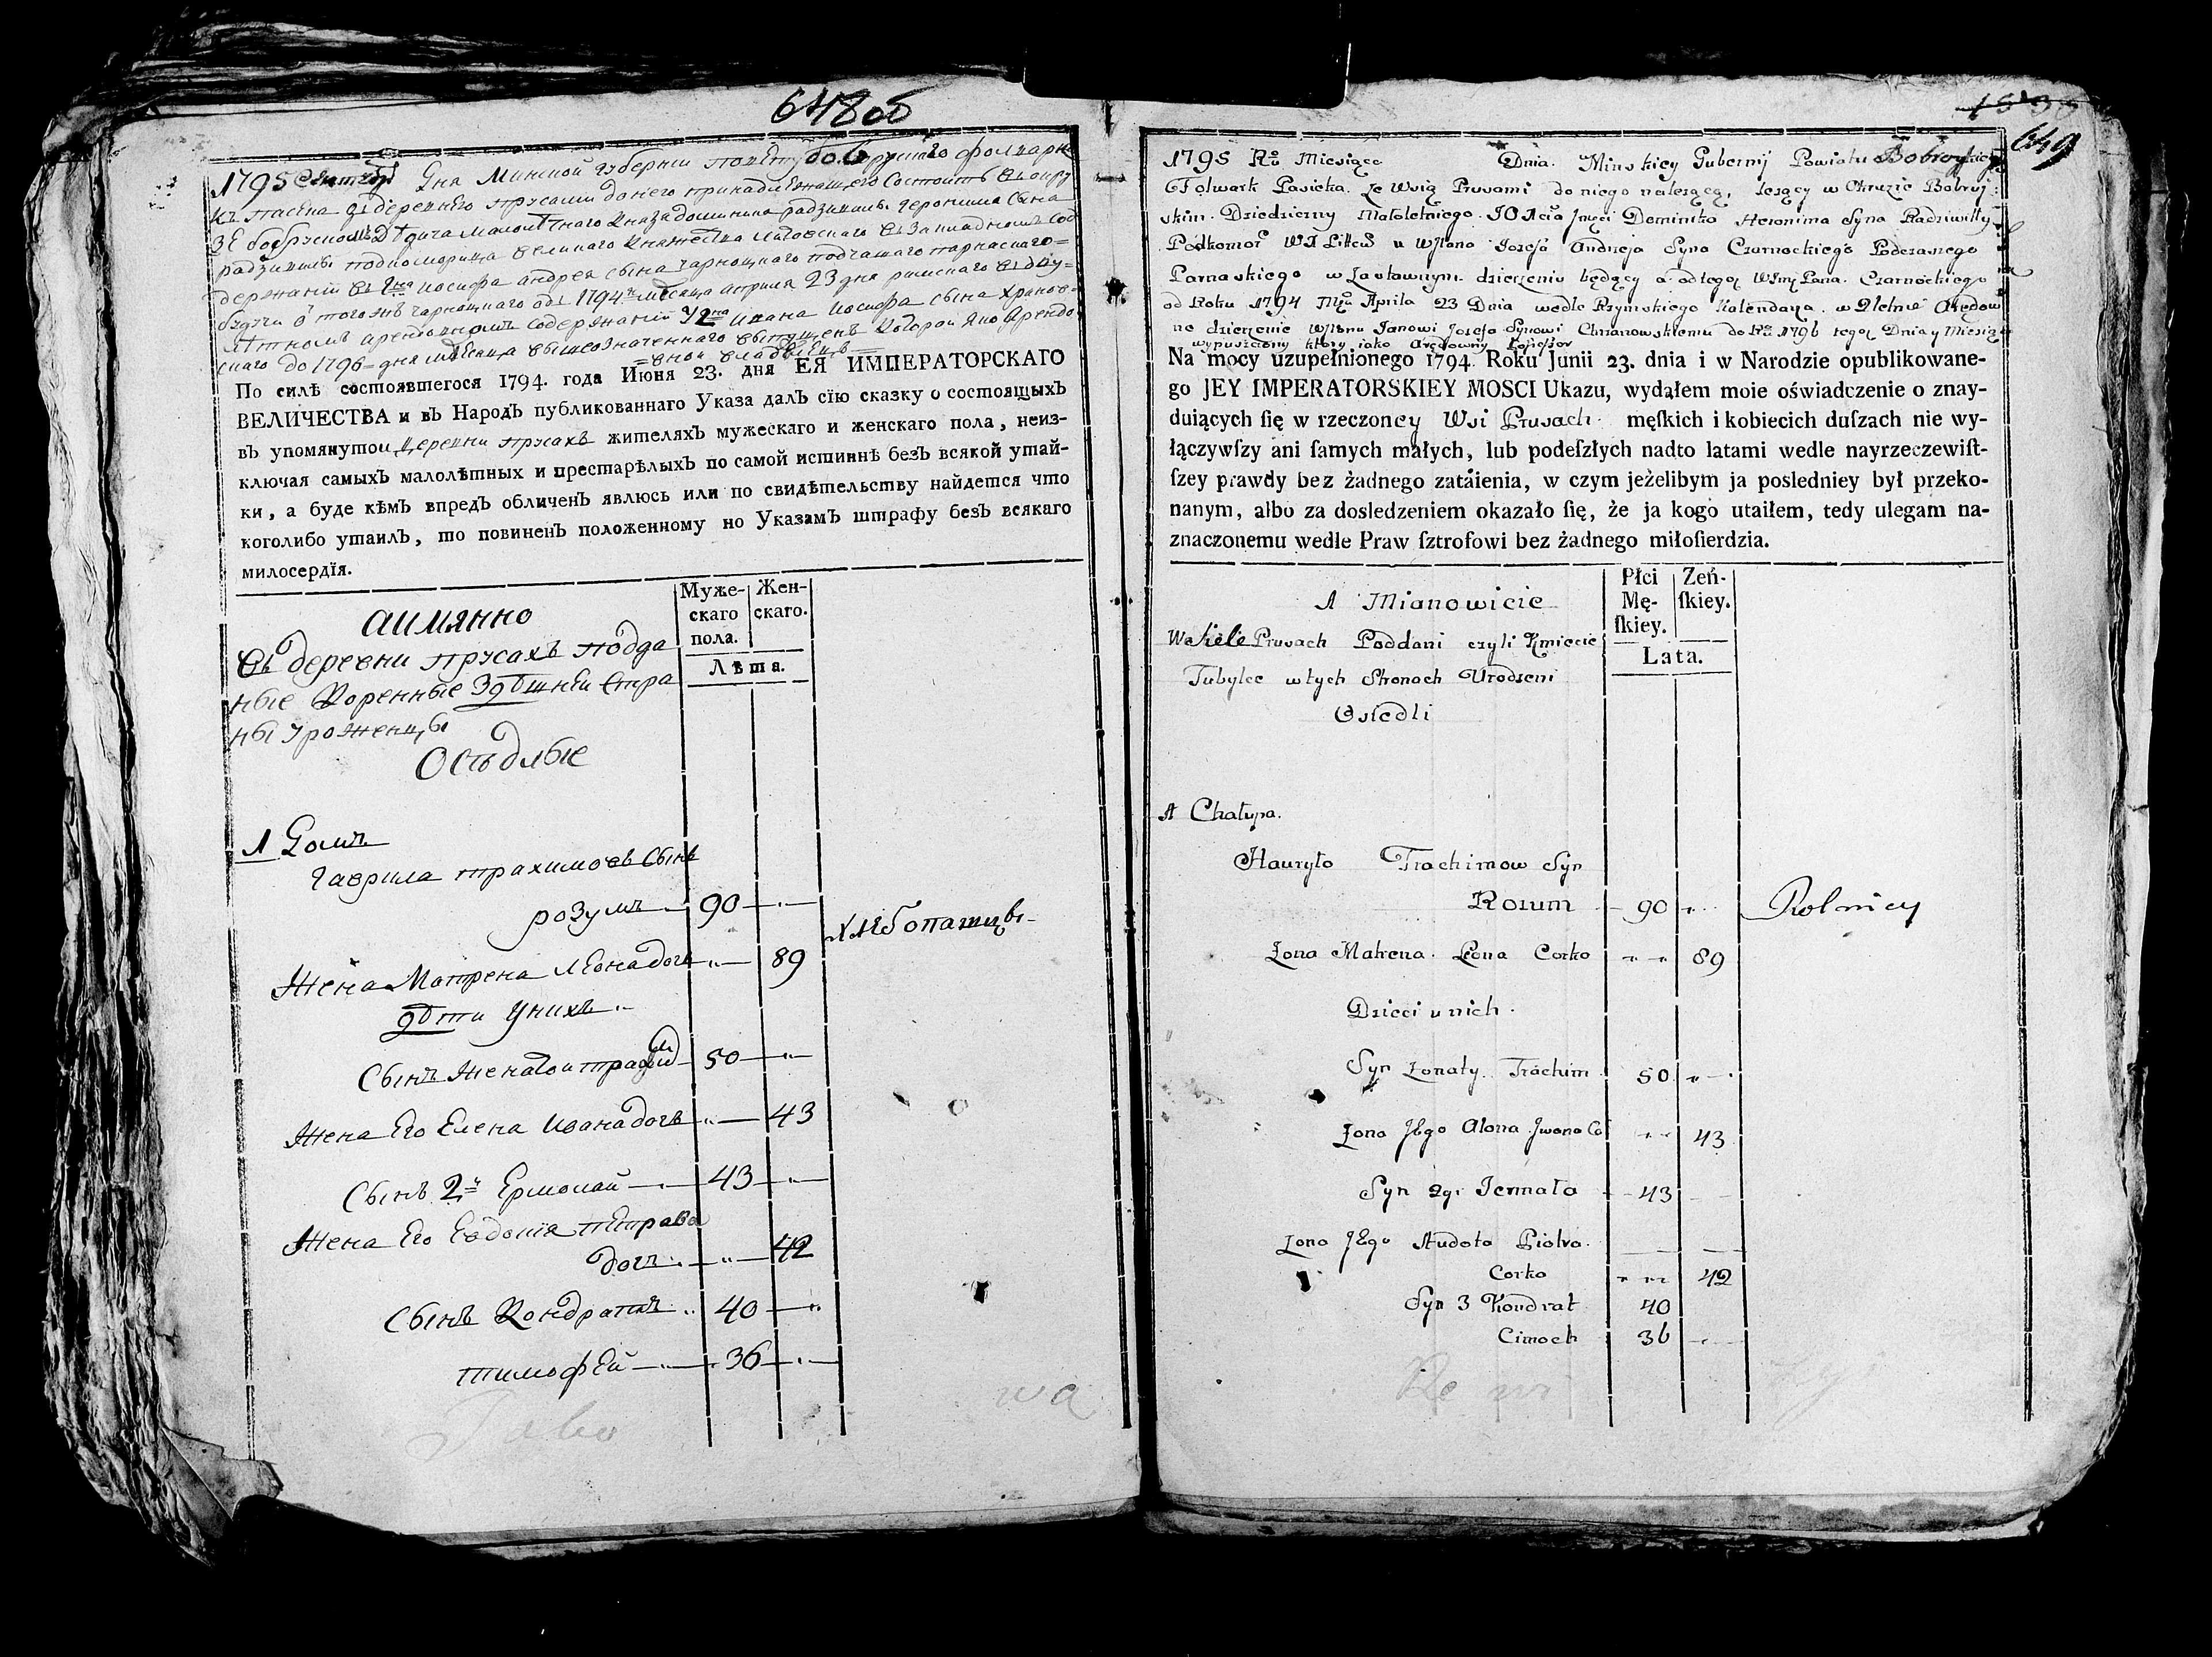 648об
1795 Сентября Дня Минской губернии повету бобруйского фолварк
къ пасека зъ деревнею прусами до него принадлежащего состоитъ въ окру
ге бобруском Дѣдича малолѣтного Князя доминика радзивилы героними Сына
радзивилы подкоморица великого Княжества литовского въ закладномъ сод
держании въ 1794 иосифа андрея сына чарноцкого подчашаго парнаского
будучи отъ того жъ чарноцкого отъ 1794 месяца априля 23 дня римского въ двy-
лѣтномъ арендовномъ содержании у ивана иосифа сына хранов-
скаго до 1796 дня месяца вышеозначенного выпущенъ которой яко Арендо
вной владѣлецъ
По силѣ состоявшегося 1794. года Июня 23. дня ЕЯ ИМПЕРАТОРСКАГО
ВЕЛИЧЕСТВА и въ Народъ публикованнаго Указа далъ сїю сказку о состоящыхъ
въ упомянутои деревни прусахъ жителяхъ мужескаго и женскаго пола, неиз-
ключая самыхъ малолѣтныхъ и престарѣлыхъ по самой истиннѣ безъ всякой утай-
ки, а буде кѣмъ впредъ обличенъ явлюсь или по свидѣтельству найдется что
коголибо утаилъ, то повиненъ положенному по Указамъ штрафу безъ всякаго
милосердїя.
аимянно
Муже-скаго пола. Жен-скаго.
Лѣта.
въ деревни прусахъ подда
ные Коренные здѣшнеи стра
ны уроженцы
Осѣдлые
1 Домъ
Гаврила трахимовъ Сынъ
розумъ 90
хлебопашцы
Жена Матрена Леона дочь 89
дѣти унихъ
Сынъ женатои трафим 50
Жена Его Елена ивана дочь 43
Сынъ 2й Ермолай 43
Жена Его Евдокия петрова
дочь 42
Сынъ Кондратъ 40
тимофей 36
649
1795 Roku Miesiąca Dnia. Minskiey Gubernij Powiatu Bobroyskiego
Folwark Pasieka. Ze Wsią Prusami do niego należącą, leżący w Okruzie Bobruj:
skim. Dziedziczny Małoletniego JO Xcia Jmci Dominika Heronima Syna Radziwiłły
Podkomor W X Littew u WJPana Jozefa Andrzeja Syna Czarnockiego Podczaszego
Parnaskiego w Zastawnym dzierżeniu będący a od tegoż WJmć Pana Czarnockiego
od Roku 1794 Mca Aprila 23 Dnia wedle Rzymskiego Kalendarza w 2letnie Arędow
ne dzierżenie WJPanu Janowi Jozefa Synowi Chranowskiemu do Rku 1796 tegoż Dnia y Miesiąca
wypuszczony ktory iako Arędowny Possessor
Na mocy uzupełnionego 1794 Roku Junii 23. dnia i w Narodzie opublikowane-
go JEY IMPERATORSKIEY MOSCI Ukazu, wydałem moie oświadczenie o znay-
duiących ſię w rzeczoney Wsi Prusach męſkich i kobiecich duſzach nie wy-
łączywſzy ani ſamych małych, lub podeſzłych nadto latami wedle nayrzeczewiſt-
ſzey prawdy bez żadnego zatáienia, w czym jeżelibym ja posledniey był przeko-
nanym, albo za dosledzeniem okazało ſię, że ja kogo utaiłem, tedy ulegam na-
znaczonemu wedle Praw ſztrofowi bez żadnego miłoſierdzia.
A Mianowicie
Płci Mę-ſkiey. Zeń-ſkiey.
Lata.
We Siele Prusach Poddani czyli Kmiecie
Tubylce w tych Stronach Urodzeni
Osiedli
1 Chałupa.
Hauryło Trachimow Syn
Rozum 90
Rolnicy
Zona Matrena. Leona Corka 89
Dzieci u nich.
Syn żonaty Trachim 50
Zona Jego Alona Jwana Co 43
Syn 2gi Jermała 43
Zona Jego Audota Piotra.
Corka 42
Syn 3 Kondrat 40
Cimoch 36